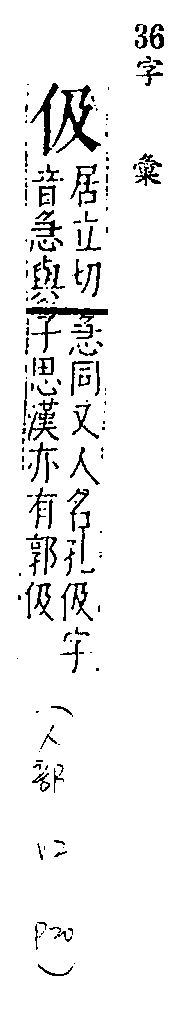 36字彙
伋
居立切
音急與
急同又人名孔伋字
子思漢亦有郭伋
(人部 12 P20)